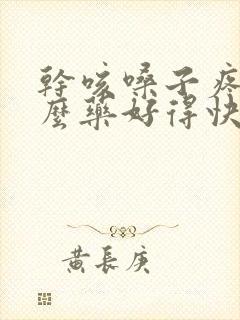 幹咳嗓子疼
麼藥好得快
黃長庚